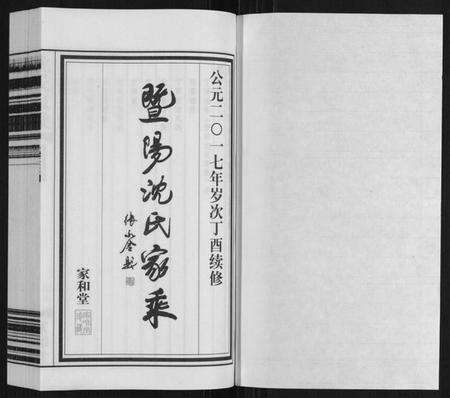 公元二〇一七年岁次丁酉续修
暨陽沈氏家乘
家和堂